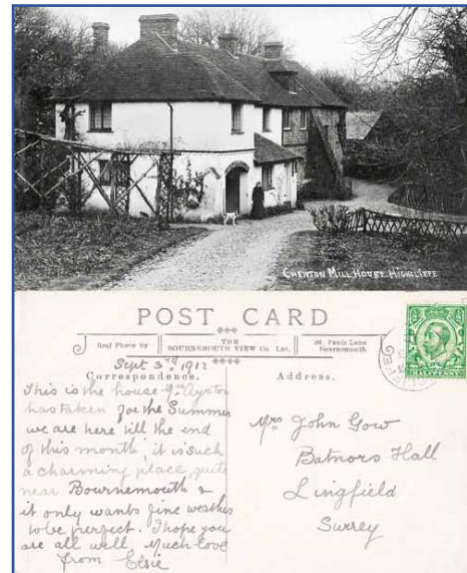 CHEWTON MILL HOUSE. HIGHCLIFFE
POST CARD
Real Photo by
THE
BOURNEMOUTH VIEW Co. Ltd.
St. Pauls Lane
Bournemouth
Sept 3rd 1912
Correspondence.
This is the house
has taken for the Summer
we are here till the end
of this month, it is such
a charming place, quite
near Bournemouth &
it only wants fine weather
to be perfect. I hope you
are all well Much love
from Elsie
Address.
Mrs John Gow
Batnors Hall
Lingfield
Surrey